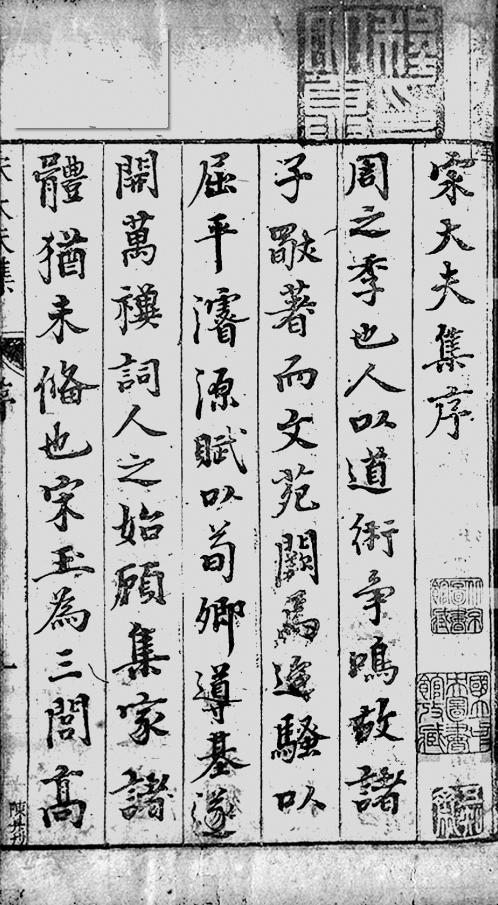 宋大夫集序
周之季也人以道術爭鳴故諸
子歠著而文苑闕焉迨騷以
屈平濬源賦以荀卿導基遂
開萬禩詞人之始顧集家諸
體猶未俻也宋玉為三閭高
宋大夫集
序
一